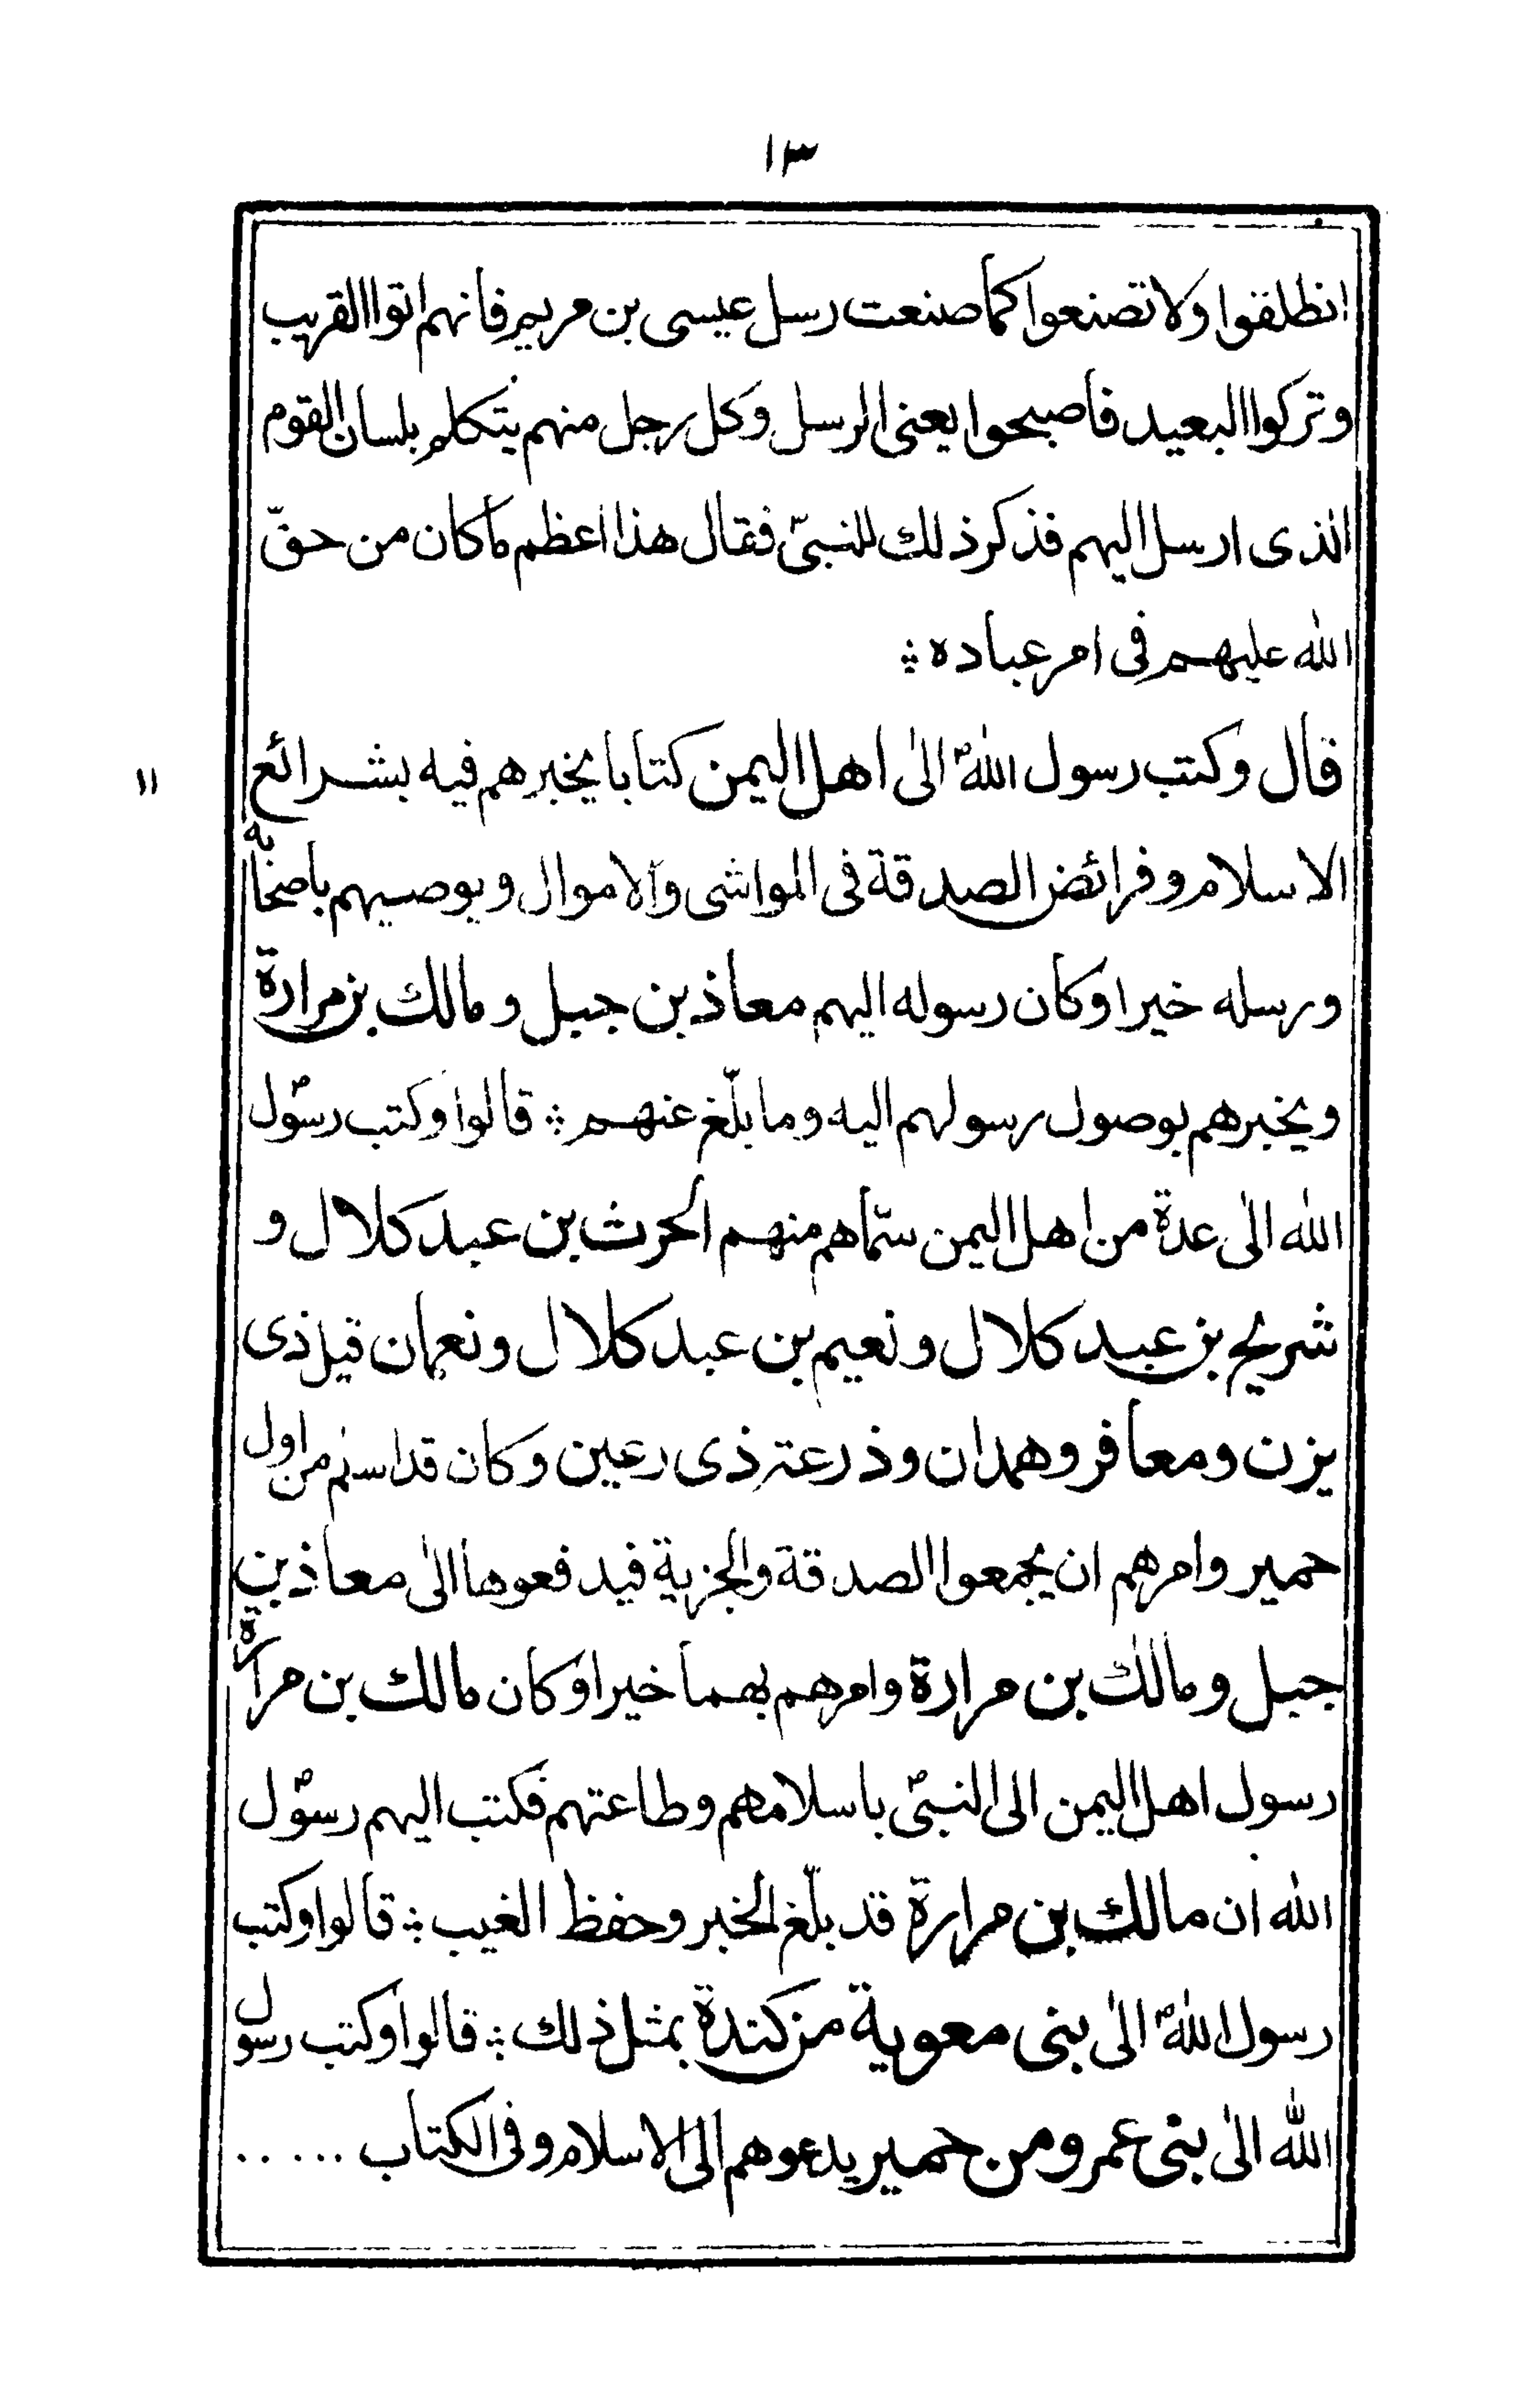 ١٣
انطلقوا ولا تصنعوا كما صنعت رسل عيسى بن مريم فانهم اتوا القريب
وتركوا البعيد فاصبحوا يعنى الرسل وكل رجل منهم يتكلم بلسان القوم
الذى ارسل اليهم فذكر ذلك للنبىّ فقال هذا اعظم ما كان من حقّ
الله عليهم فى امر عباده ؞
قال وكتب رسول اللهؐ الىٰ اهل اليمن كتابا يخبرهم فيه بشرائع
١١
الاسلام وفرائض الصدقة فى المواشى والاموال ويوصيهم باصحابه
ورسله خيرا وكان رسوله اليهم معاذ بن جبل ومالك بن مرارة
ويخبرهم بوصول رسولهم اليه وما بلّغ عنهم ؞ قالوا وكتب رسولؐ
الله الىٰ عدة من اهل اليمن سمّاهم منهم الحرث بن عبد كلال و
شريح بن عبد كلال ونعيم بن عبد كلال ونعمان قيل ذى
يزن ومعافر وهمدان وذرعة ذى رعين وكان قد اسلم من اول
حمير وامرهم ان يجمعوا الصدقة والجزية فيدفعوها الىٰ معاذ بن
جبل ومالك بن مرارة وامرهم بهما خيرا وكان مالك بن مرارة
رسول اهل اليمن الى النبىؐ باسلامهم وطاعتهم فكتب اليهم رسولؐ
الله ان مالك بن مرارة قد بلّغ الخبر وحفظ الغيب ؞ قالوا وكتب
رسول اللهؐ الىٰ بنى معوية من كندة بمثل ذلك ؞ قالوا وكتب رسول
الله الىٰ بنى عمرو من حمير يدعوهم الى الاسلام وفى الكتاب ......